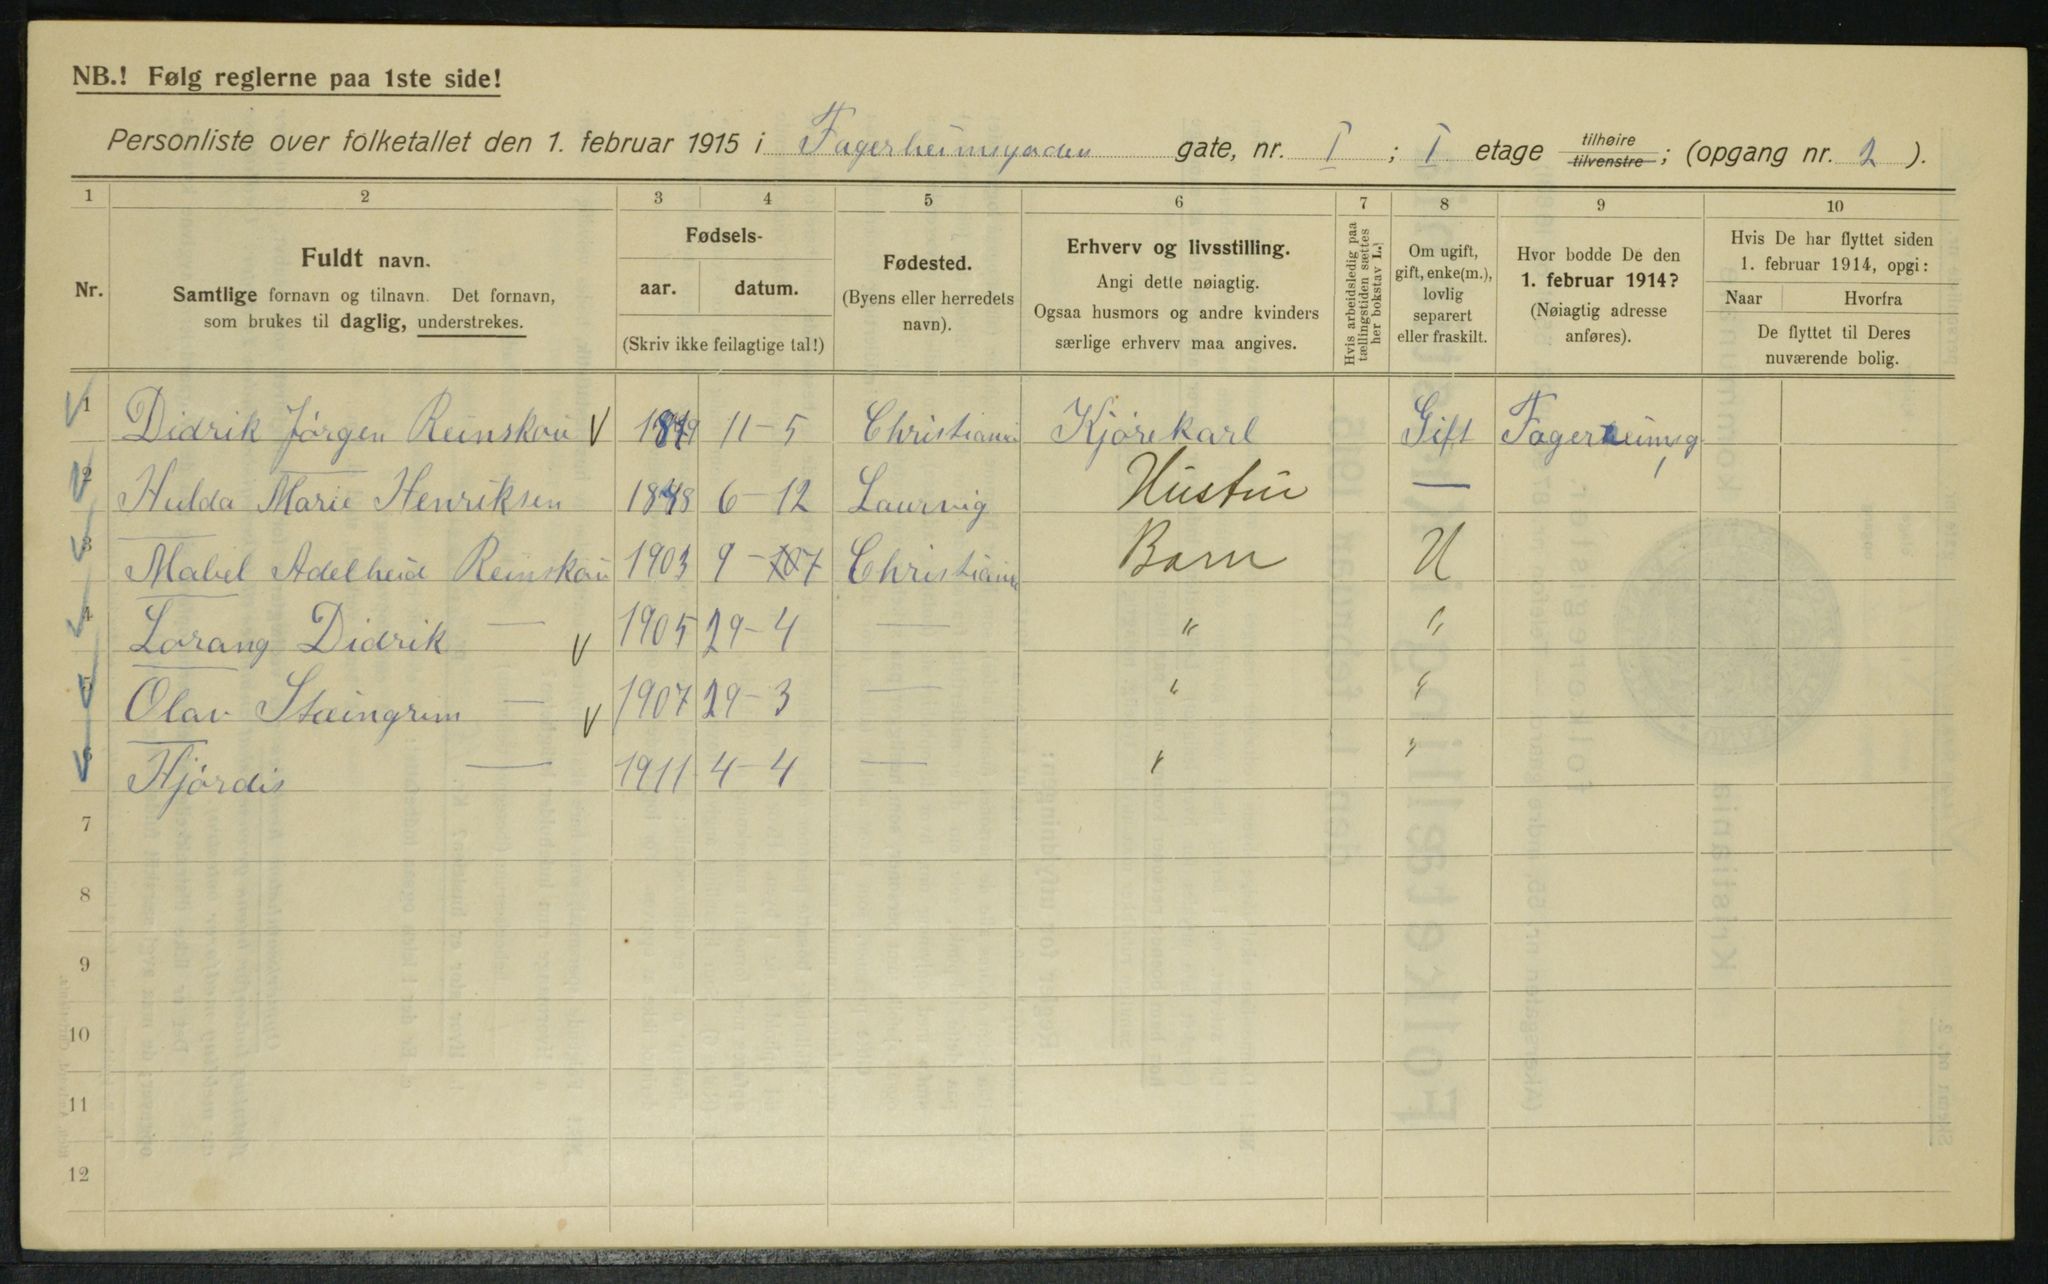 NB.! Følg reglerne paa 1ste side!
Personliste over folketallet den 1. februar 1915 i Fagerheimsgaden gate, nr. I ; I etage tilhøire tilvenstre ; (opgang nr. 2 ).
1 2 3 4 5 6 7 8 9 10
Nr.
Fuldt navn.
Samtlige fornavn og tilnavn. Det fornavn,
som brukes til daglig, understrekes.
Fødsels-
aar. datum.
(Skriv ikke feilagtige tal!)
Fødested.
(Byens eller herredets
navn).
Erhverv og livsstilling.
Angi dette nøiagtig.
Ogsaa husmors og andre kvinders
særlige erhverv maa angives.
Hvis arbeidsledig paa
tællingstiden sættes
her bokstav L.
Om ugift,
gift, enke(m.),
lovlig
separert
eller fraskilt.
Hvor bodde De den
1. februar 1914?
(Nøiagtig adresse
anføres).
Hvis De har flyttet siden
1. februar 1914, opgi:
Naar Hvorfra
De flyttet til Deres
nuværende bolig.
1 Didrik Jörgen Reinskou V 11-5 Christiania Kjörekarl Gift Fagerheimsg 1
2 Hulda Marie Henriksen 6-12 Laurvig Hustru —
3 Mabel Adelheid Reinskou 1903 9-7 Christiania Barn U
4 Lorang Didrik — V 1905 29-4 — " "
5 Olav Steingrim — V 1907 29-3 — " "
6 Hjördis — 1911 4-4 — " "
7
8
9
10
11
12